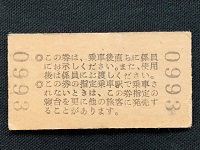 0993
◎この券は、乗車後直ちに係員
にお示しください。また、使用
後は係員にお渡しください。
◎この券の指定乗車駅で乗車さ
れないときは、この券指定の
寝台を更に他の旅客に発売す
ることがあります。
0993